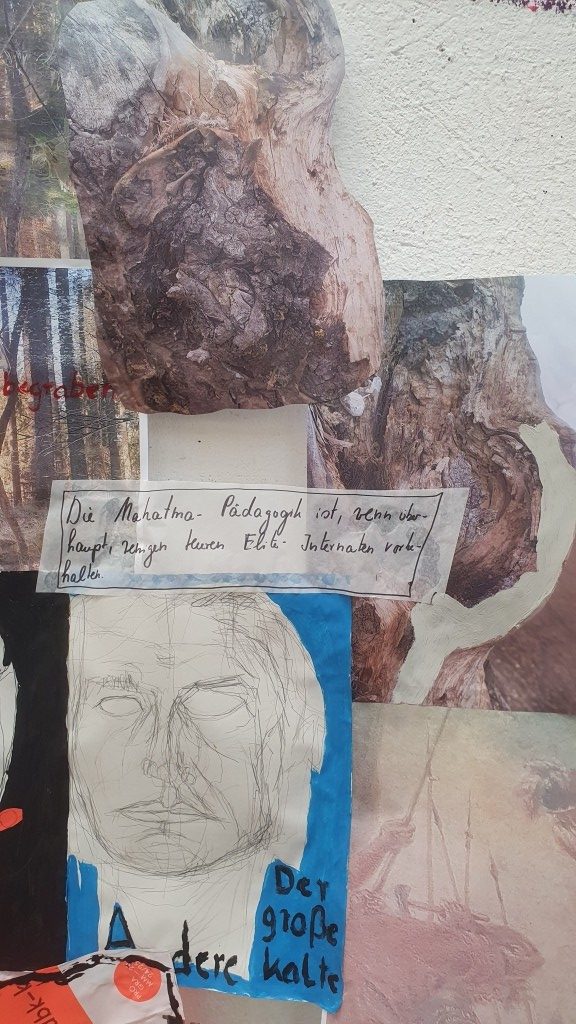 begraben
Die Mahatma- Pädagogik ist, wenn über-
haupt, wenigen teuren Elite- Internaten vorbe-
halten.
Der
große
A dere kalte
PRO
GRA
MM